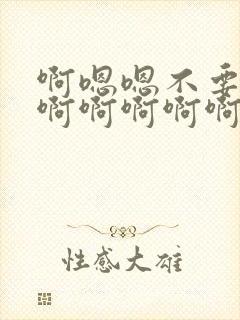 啊嗯嗯不要
啊啊啊啊啊
性感大雄